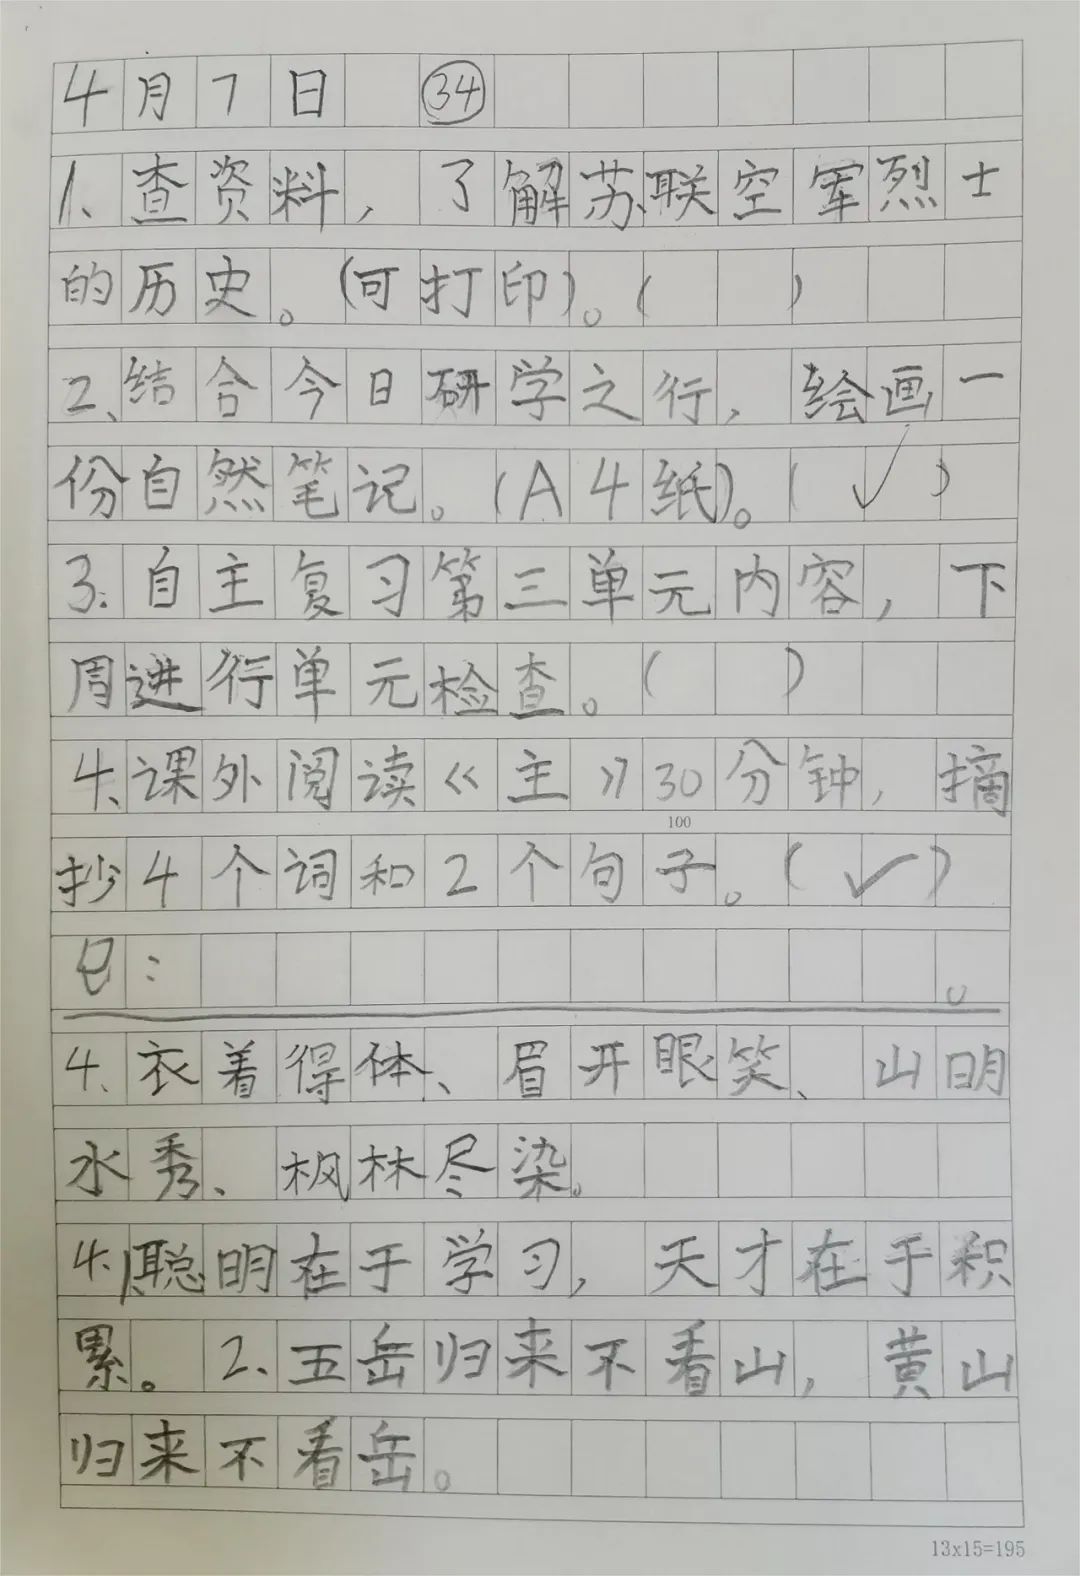 4月7日 ㉞
1、查资料，了解苏联空军烈士
的历史。(可打印)。( )
2、结合今日研学之行，绘画一
份自然笔记。(A4纸)。( ✓ )
3.自主复习第三单元内容，下
周进行单元检查。( )
4、课外阅读《主》30分钟，摘
100
抄4个词和2个句子。( ✓ )
：。
4、衣着得体、眉开眼笑、山明
水秀、枫林尽染。
4.1.聪明在于学习，天才在于积
累。2、五岳归来不看山，黄山
归来不看岳。
13x15=195